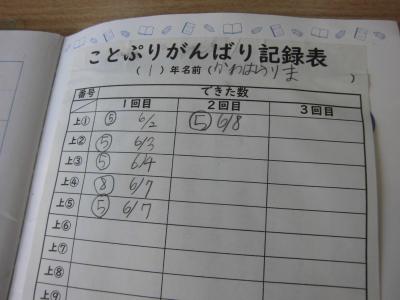 ことぷりがんばり記録表
( 1 )年名前(かわはらりま )
番号 できた数
1回目 2回目 3回目
上① ⑤ 6/2 ⑤ 6/8
上② ⑤ 6/3
上③ ⑤ 6/4
上④ ⑧ 6/7
上⑤ ⑤ 6/7
上⑥
上⑦
上⑧
上⑨